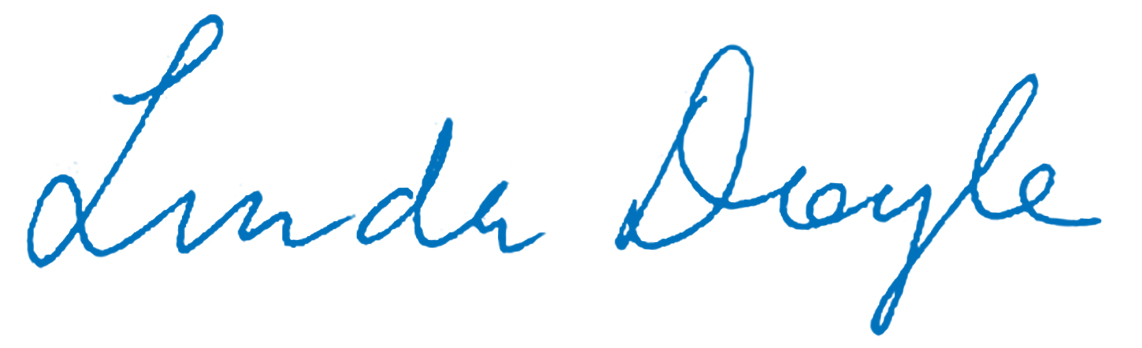 Linda Doyle